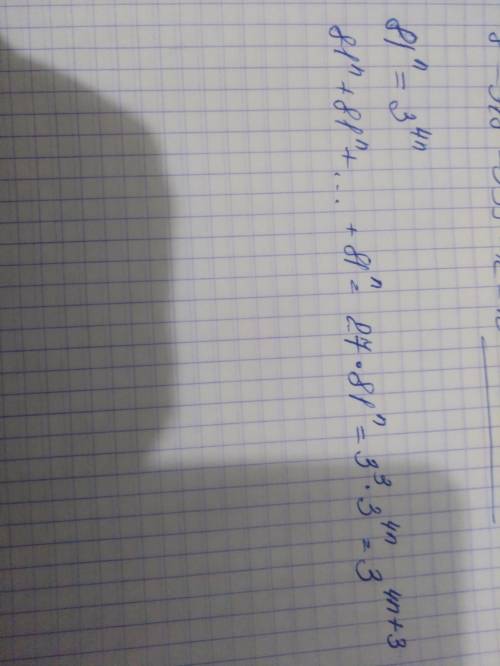 81ⁿ = 3⁴ⁿ
81ⁿ + 81ⁿ + ... + 81ⁿ = 27 · 81ⁿ = 3³ · 3⁴ⁿ = 3⁴ⁿ⁺³